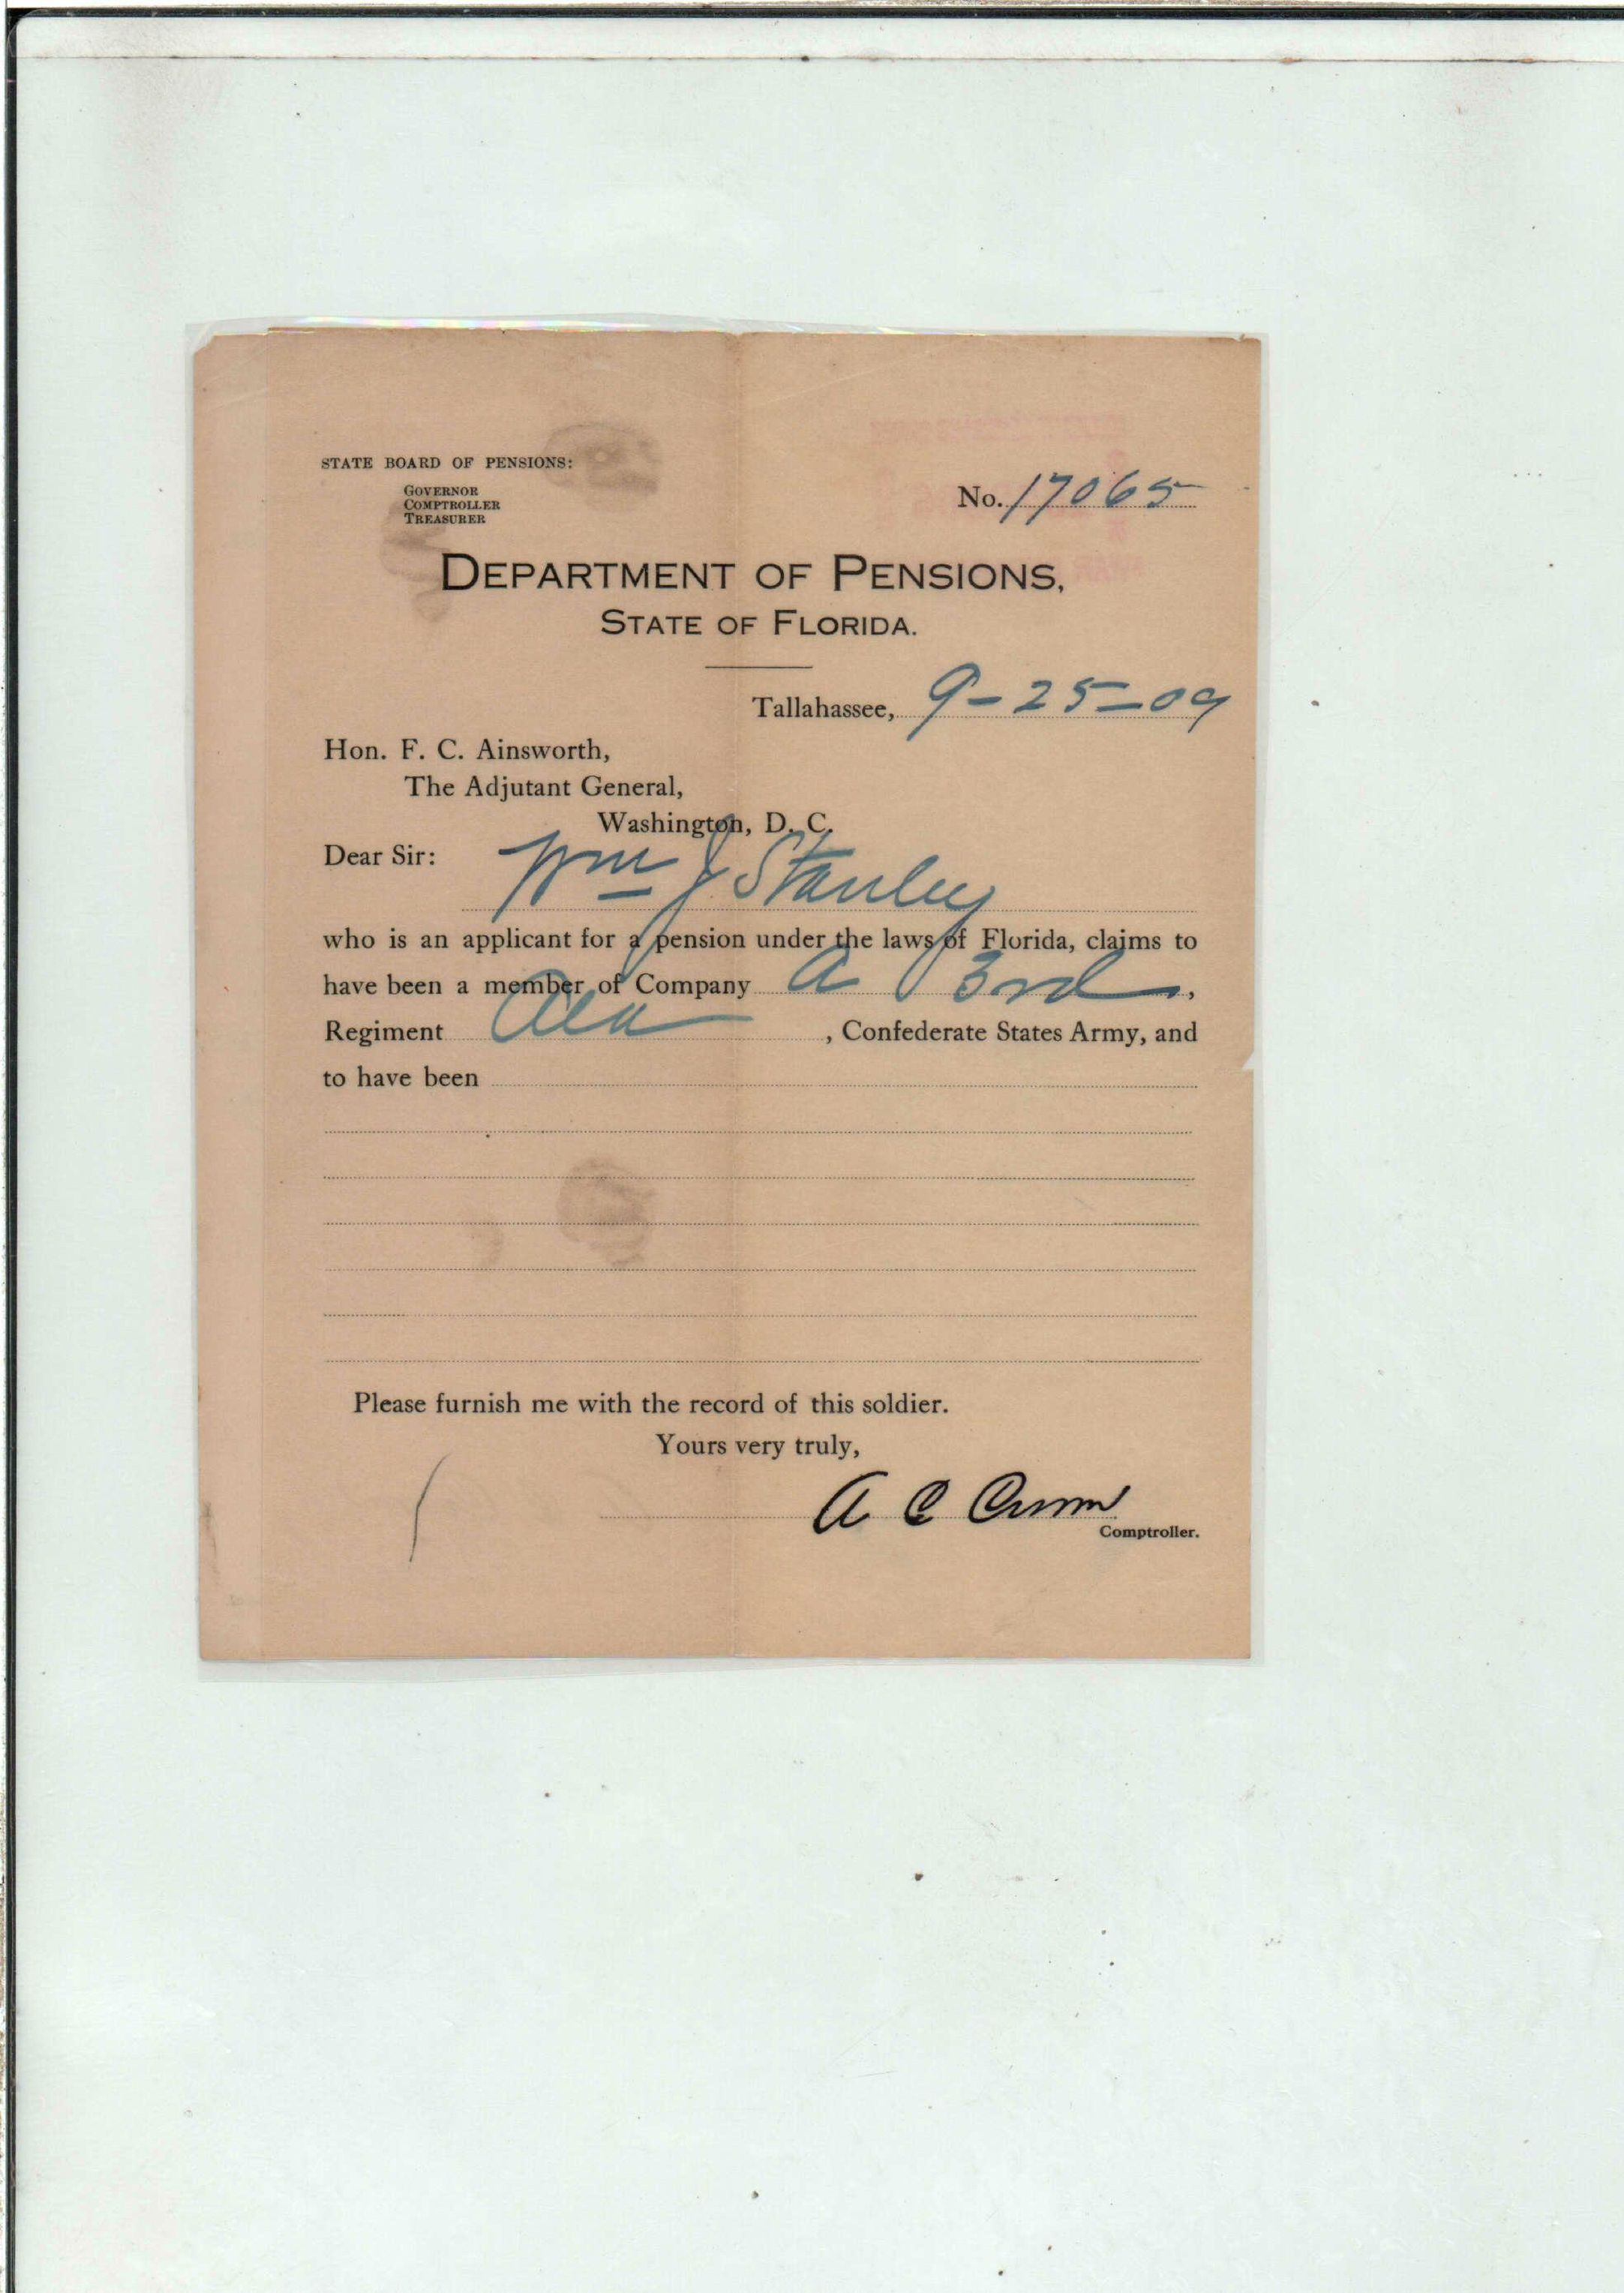 STATE BOARD OF PENSIONS:
GOVERNOR
COMPTROLLER
TREASURER
No. 17065
DEPARTMENT OF PENSIONS,
STATE OF FLORIDA.
Tallahassee, 9-25-09
Hon. F. C. Ainsworth,
The Adjutant General,
Washington, D. C.
Dear Sir:
Wm J Stanley
who is an applicant for a pension under the laws of Florida, claims to
have been a member of Company A 3rd,
Regiment Ala, Confederate States Army, and
to have been
Please furnish me with the record of this soldier.
Yours very truly,
A C Croom
Comptroller.